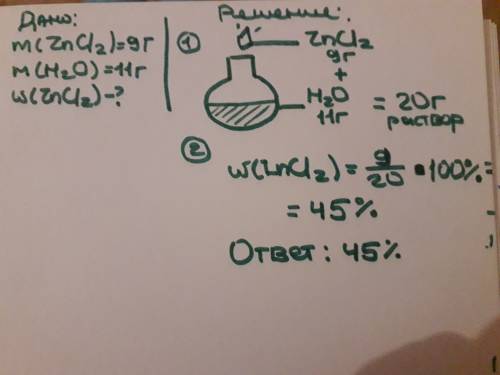 Дано:
m(ZnCl2)=9г
m(H2O)=11г
w(ZnCl2)-?
Решение:
①
ZnCl2
9г
+
H2O
11г
= 20г
раствор
②
w(ZnCl2) = 9/20 • 100% =
= 45%
Ответ: 45%